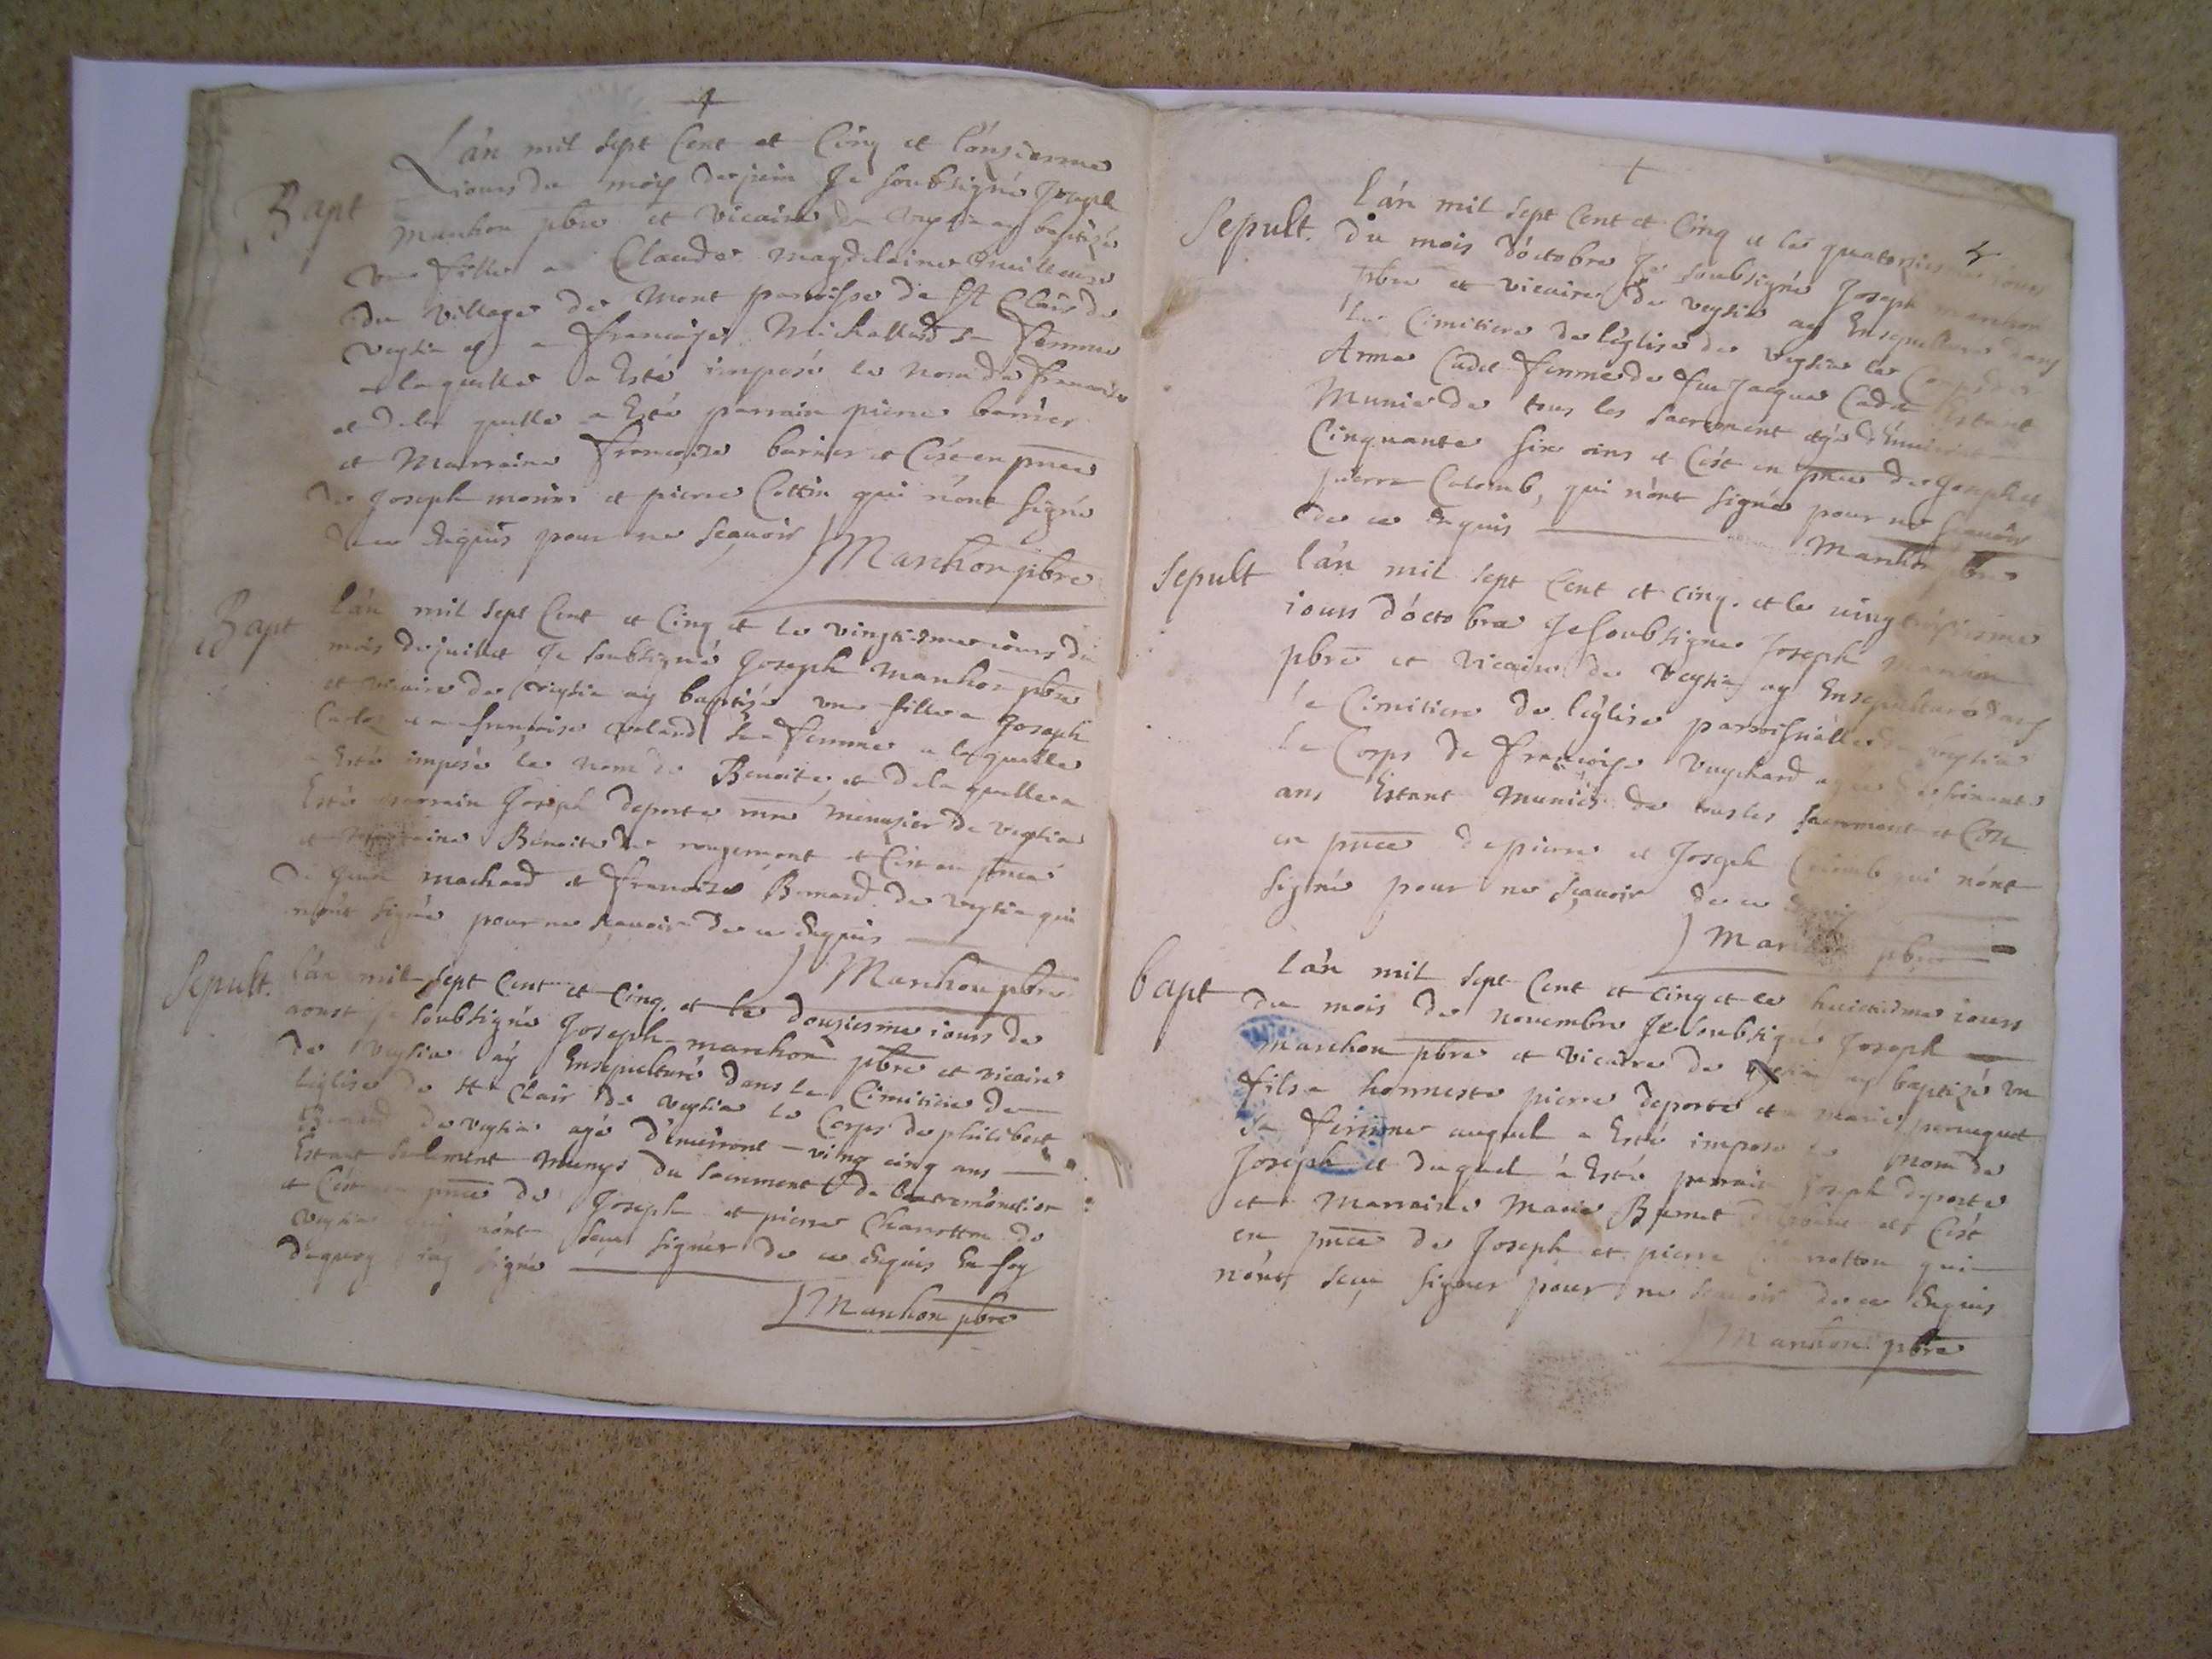 Bapt
L'an mil sept Cent et Cinq et l'onziesme
jour du mois de juin Je soubsigné Joseph
Marchon pbre et vicaire de veysia ay baptizé
une fille a Claude Magdelaine
du village de Mont paroisse de St Clair de
veysia et a françoise Michallard sa femme
a laquelle a Esté imposé le nom de françoise
et de la quelle a Esté parrain pierre barrier
et Marraine françoise barrier et C'est en pnce
de Joseph monier et pierre Cottin qui n'ont signé
de ce Enquis pour ne sçauoir
Marchon pbre
Bapt
l'an mil sept Cent et Cinq et le vingtiesme jour du
mois de juillet Je soubsigné Joseph Marchon pbre
et vicaire de veysia ay baptizé une fille a Joseph
et a françoise voland sa femme a laquelle
a Esté imposé le nom de Benoite, et de la quelle a
Esté parrain Joseph deporte menuzier de veysia
et Marraine Benoite de rougemont et C'est en pnce
de machard et françoise Bernard de veysia qui
n'ont signé pour ne sçauoir de ce Enquis
Marchon pbre
Sepult.
l'an mil sept Cent et Cinq. et le douziesme jour de
aoust je soubsigné Joseph marchon pbre et vicaire
de veysia ay Ensepulturé dans le Cimitiere de
l'église de St Clair de veysia le Corps de philibert
de veysia agé d'enuiront ving cinq ans
Estant seulement Munys du sacrement de l'extremonction
et C'est en pnce de Joseph et pierre Charotton de
veysia qui n'ont sceu signer de ce Enquis En foy
dequoy j'ay signé
Marchon pbre
Sepult.
l'an mil sept Cent et Cinq et le quatorzies jour
du mois d'octobre Je soubsigné Joseph marchon
pbre et vicaire de veysia ay Ensepulturé dans
le Cimitiere de l'église de veysia le Corps de
Anne Cadet femme de feu Jacque Cadet Estant
Munie de tous les sacrement agé d'enuiront
Cinquante six ans et C'est en pnce de Joseph et
pierre Colomb, qui n'ont signé pour ne sçauoir
de ce Enquis
Marchon pbre
Sepult
l'an mil sept Cent et cinq. et le ving troisiesme
jour d'octobre Je soubsigné Joseph Marchon
pbre et vicaire de veysia ay Ensepulturé dans
le Cimitiere de l'église parroissialle de veysia
le Corps de françoise vuychard agée de soixante
ans Estant Munies de tous les sacrement et C'est
en pnce de pierre et Joseph Colomb qui n'ont
signé pour ne sçauoir de ce Enquis
Marchon pbre
bapt
l'an mil sept Cent et cinq et le huictiesme jour
du mois de novembre Je soubsigné Joseph
marchon pbre et vicaire de veysia ay baptizé un
fils a honneste pierre deporte et a marie
sa femme auquel a Esté imposé le nom de
Joseph et duquel a Esté parrain Joseph deporte
et Marraine Marie Burnet et C'est
en pnce de Joseph et pierre Charrotton qui
n'ont sceu signer pour ne sçauoir de ce Enquis
Marchon pbre